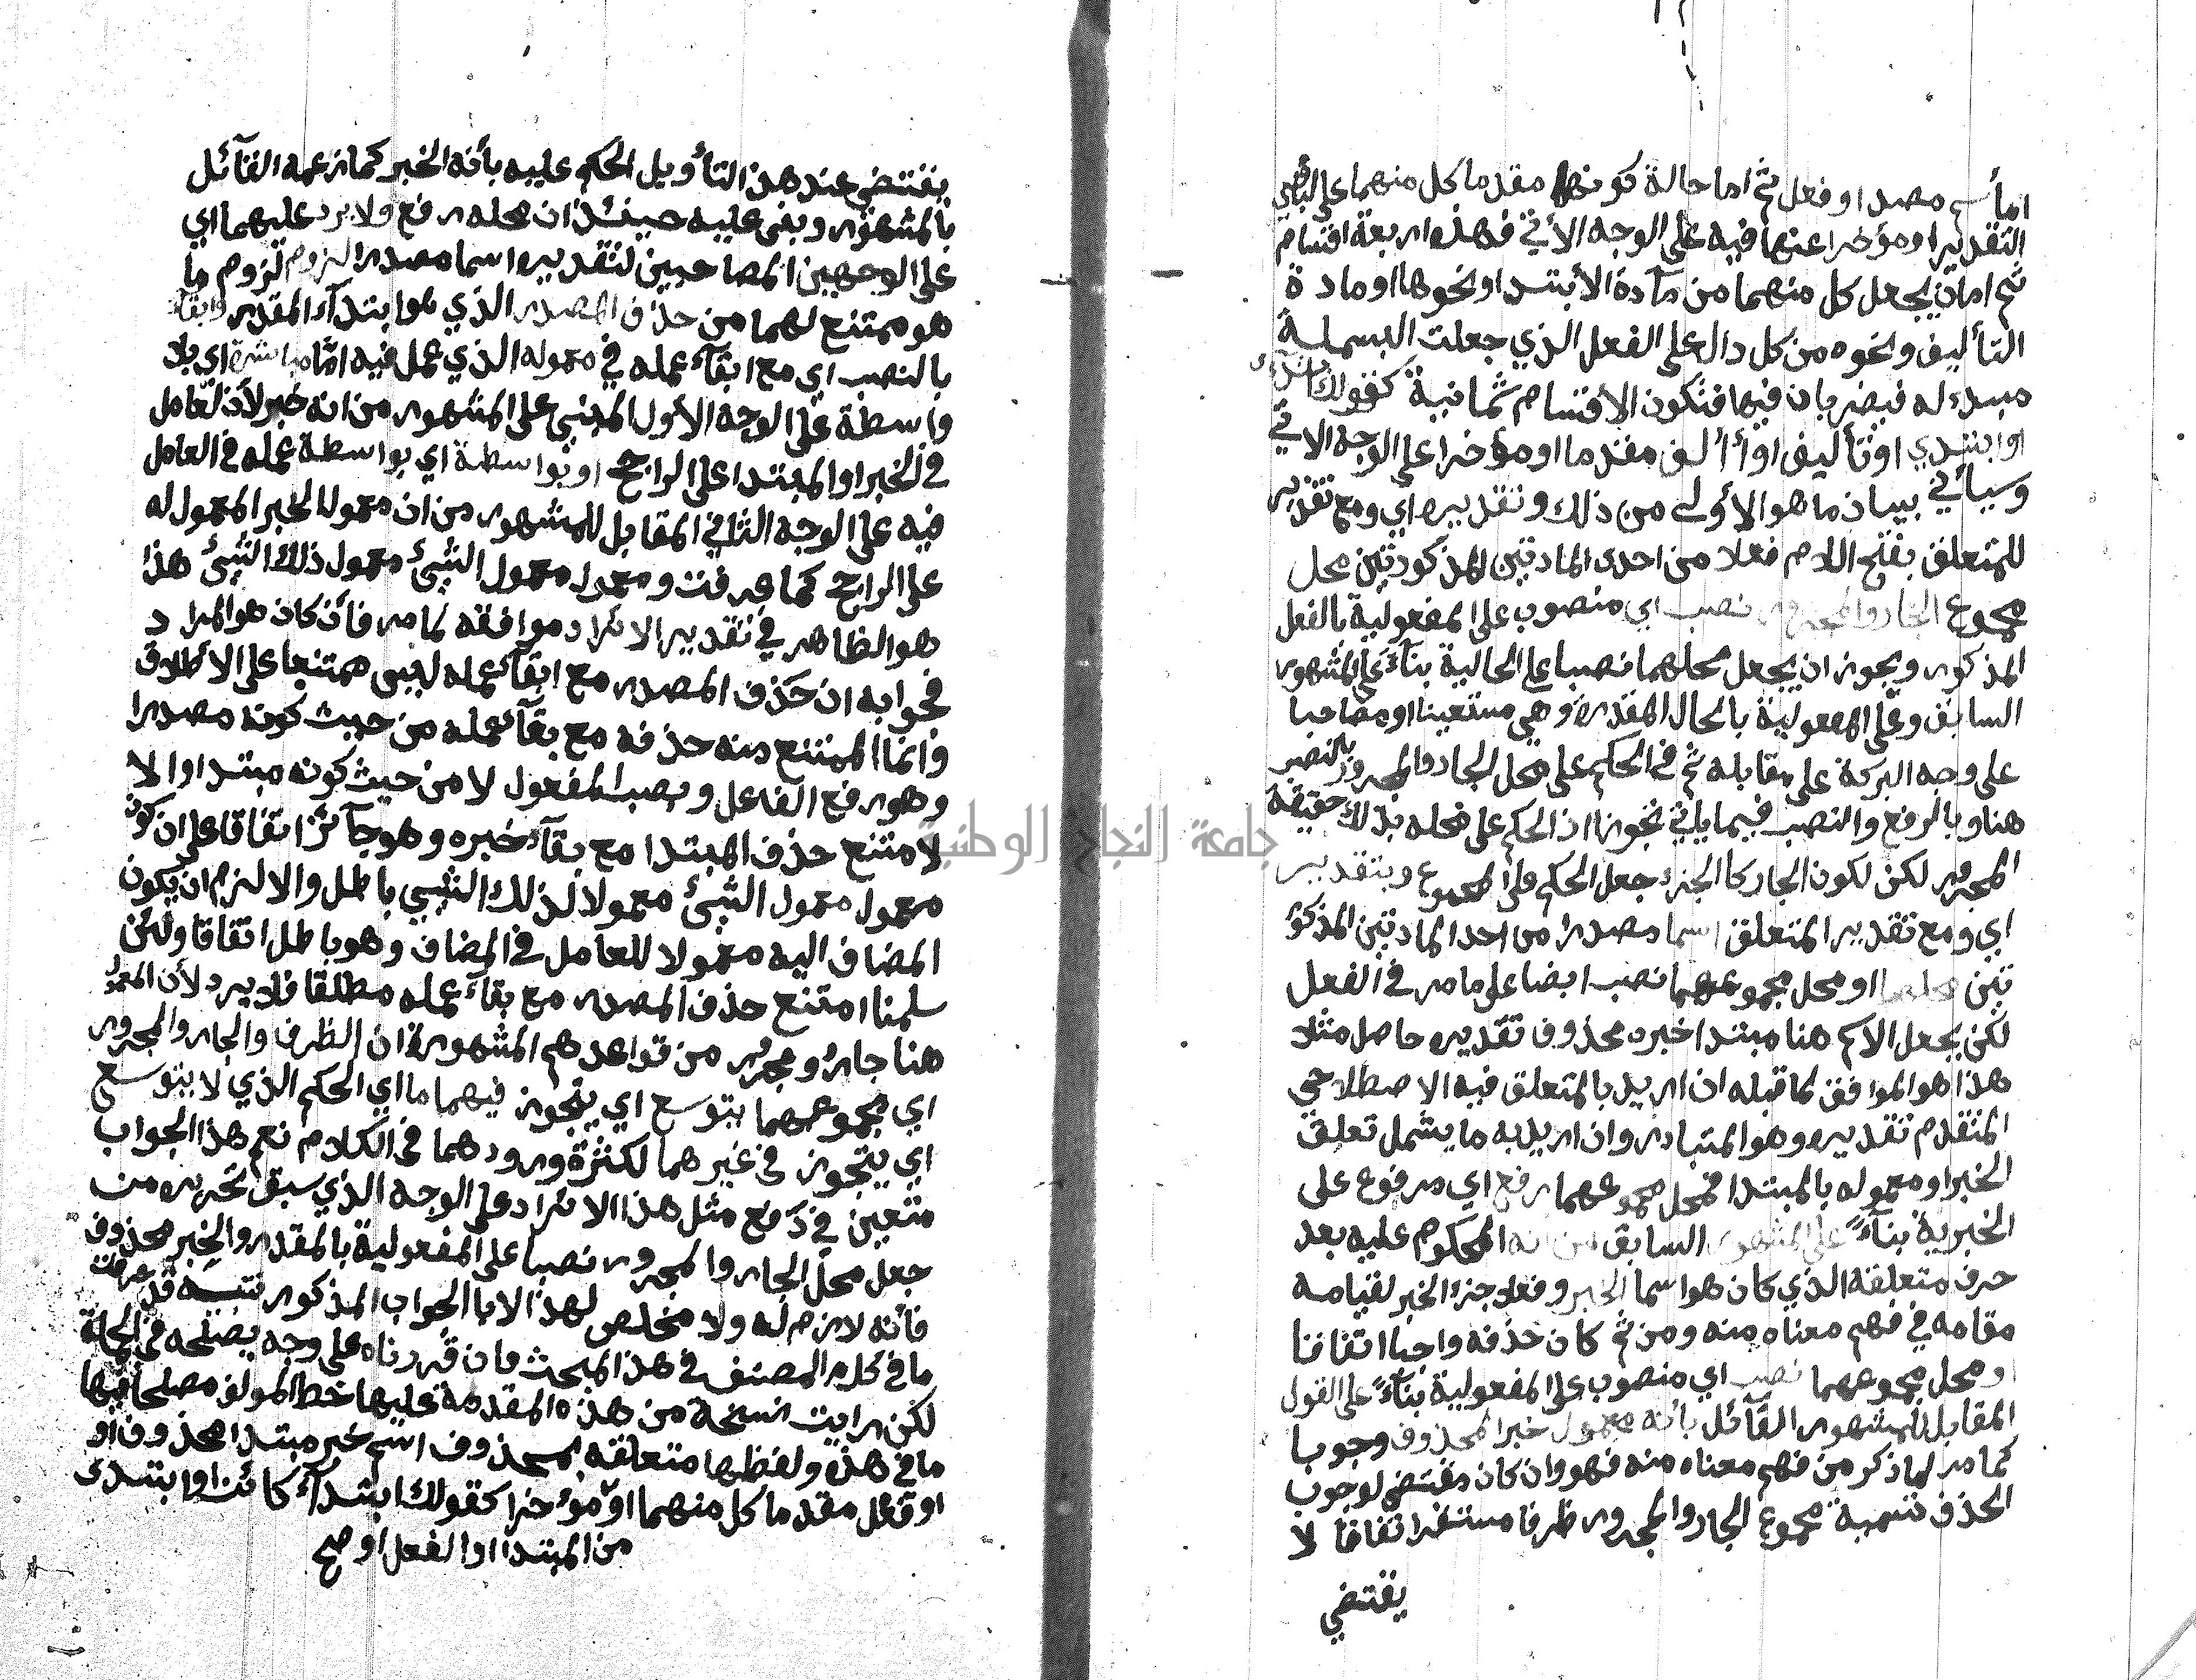 اما سم مصدر او فعل ثم اما حالة كونها مقدما كل منهما على
التقدير او مؤخرا عنها فيه على الوجه الأتي فهذه اربعة اقسام
ثم اما ان يجعل كل منهما من مآدة الأبتدا ونحوها او مادة
التأليف ونحوه من كل دال على الفعل الذي جعلت البسملة
مبدء له فيضربان فيها فتكون الأقسام ثمانية كقولك
او ابتدي او تأليف او أألف مقدما او مؤخرا على الوجه الاتي
وسيأتي بيان ما هو الأولى من ذلك وتقديره اي ومع تقدير
للمتعلق بفتح اللام فعلا من احدى المادتين المذكورتين محل
مجموع الجار والمجرور نصب اي منصوب على المفعولية بالفعل
المذكور ويجوز ان يجعل محلهما نصبا على الحالية بنآء على المشهور
السابق وعلى المفعولية بالحال المقدرة وهي مستعينا او مصاحبا
على وجه البركة على مقابله ثم في الحكم على محل الجار والمجرور بالنصب
هنا وبالرفع والنصب فيما يأتي تجوز اذ الحكم على محله بذلك حقيقة
المجرور لكن لكون الجار كالجزء جعل الحكم على المجموع وبتقدير
اي ومع تقدير المتعلق اسما مصدرا من احد المادتين المذكو
تين محلهما او محل مجموعهما نصب ايضا على ما مر في الفعل
لكن يجعل الاسم هنا مبتدا خبره محذوف تقديره حاصل مثلا
هذا هو الموافق لما قبله ان اريد بالمتعلق فيه الاصطلاحي
المتقدم تقديره وهو المتبادر وان اريد به ما يشمل تعلق
الخبر او معموله بالمبتدا فمحل مجموعهما رفع اي مرفوع على
الخبرية بنآءً على المشهور السابق من انه المحكوم عليه بعد
حرف متعلقه الذي كان هو اسما الخبر وفعلا جزء الخبر لقيامه
مقامه في فهم معناه منه ومن ثم كان حذفه واجبا اتفاقا
او محل مجموعهما نصب اي منصوب على المفعولية بنآءً على القول
المقابل للمشهور القآئل بأنه معمول خبر المحذوف وجوبا
كما مر لما ذكر من فهم معناه منه فهو وان كان مقتضى لوجوب
الحذف تسمية مجموع الجار والمجرور ظرفا مستقرا اتفاقا لا
يقتضي
يقتضي عند هذا التأويل الحكم عليه بأنه الخبر كما زعمه القآئل
بالمشهور وبنى عليه حينئذ ان محله رفع ولا يرد عليهما اي
على الوجهين المصاحبين لتقديره اسما مصدرا لزوم لزوم ما
هو ممتنع لهما من حذف المصدر الذي هو ابتدآء المقدر وابقآء
بالنصب اي مع ابقآء عمله في معموله الذي عمل فيه امّا مباشرة اي بلا
واسطة على الوجه الأول المبني على المشهور من انه خبر لأن العامل
في الخبر او المبتدا على الراجح او بواسطة اي بواسطة عمله في العامل
فيه على الوجه الثاني المقابل للمشهور من ان معمول الخبر المعمول له
على الراجح كما عرفت ومعمول معمول الشيئ معمول ذلك الشيئ هذا
هو الظاهر في تقدير الايراد موافقه لما مر فأن كان هو المراد
فجوابه ان حذف المصدر مع ابقآء عمله ليس ممتنعا على الأطلاق
وانما الممتنع منه حذفه مع بقآء عمله من حيث كونه مصدرا
وهو رفع الفاعل ونصب المفعول لا من حيث كونه مبتدا والا
لامتنع حذف المبتدا مع بقآء خبره وهو جآئز اتفاقا على ان كون
معمول معمول الشيئ معمولا لذلك الشيئ باطل والا لزم ان يكون
المضاف اليه معمولا للعامل في المضاف وهو باطل اتفاقا ولئن
سلمنا امتنع حذف المصدر مع بقآء عمله مطلقا فلا يرد لأن المعمول
هنا جار ومجرور من قواعدهم المشهورة ان الظرف والجار والمجرور
اي مجموعهما يتوسع اي يتجوز فيهما ما اي الحكم الذي لا يتوسع
اي يتجوز في غيرهما لكثرة ورودهما في الكلام نعم هذا الجواب
متعين في دفع مثل هذا الايراد على الوجه الذي سبق تحريره من
جعل محل الجار والمجرور نصبا على المفعولية بالمقدر والخبر محذوف
فأنه لازم له ولا مخلص لهذا الا بالجواب المذكور تنبيه قد عرفت
ما في كلام المصنف في هذا المبحث وان قررناه على وجه يصلحه في الجملة
لكن رايت نسخة من هذه المقدمة عليها خط المولف مصلحا فيها
ما في هذه ولفظها متعلقه بمحذوف اسم خبر مبتدا محذوف او
او فعل مقدما كل منهما او مؤخرا كقولك ابتدآء كائن او ابتدى
من المبتدا او الفعل اوضح
جامعة النجاح الوطنية